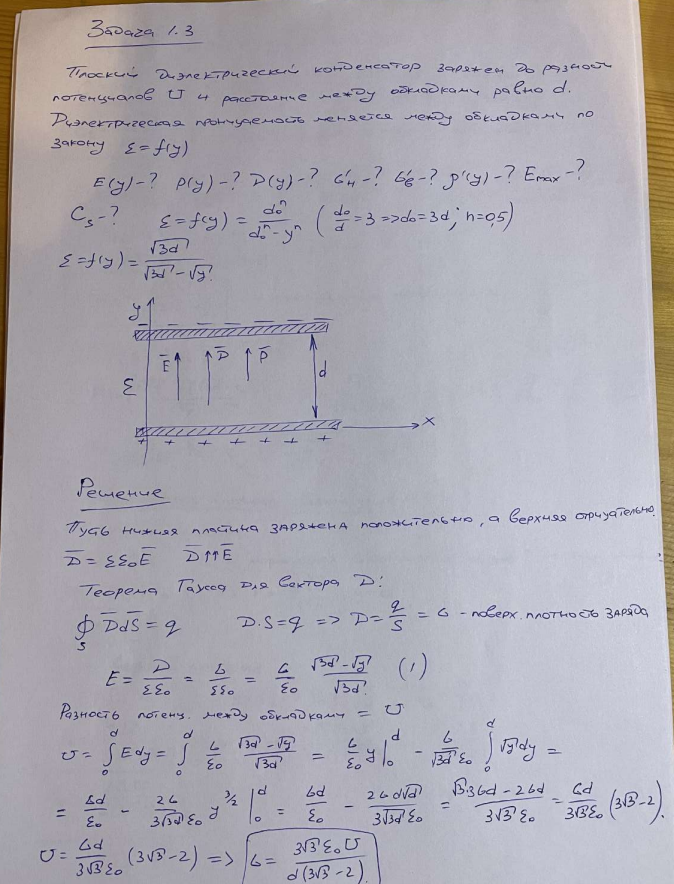 Задача 1.3
Плоский диэлектрический конденсатор заряжен до разности
потенциалов U и расстояние между обкладками равно d.
Диэлектрическая проницаемость меняется между обкладками по
закону ε=f(y)
E(y)-? P(y)-? D(y)-? σ'н-? σ'в-? ρ'(y)-? Emax-?
Cs-? ε=f(y)= d₀ⁿ/(d₀ⁿ-yⁿ) (d₀/d=3 => d₀=3d; n=0,5)
ε=f(y)= √3d/(√3d-√y)
y
E D P
ε d
x
Решение
Пусть нижняя пластина заряжена положительно, а верхняя отрицательно.
D̅=εε₀E̅ D̅↑↑E̅
Теорема Гаусса для вектора D:
∮s D̅dS̅=q D·S=q => D=q/S=σ - поверх. плотность заряда
E= D/(εε₀) = σ/(εε₀) = σ/ε₀ (√3d-√y)/√3d (1)
Разность потенц. между обкладками = U
U=∫₀ᵈ Edy=∫₀ᵈ σ/ε₀ (√3d-√y)/√3d = σ/ε₀ y|₀ᵈ - σ/(√3d ε₀) ∫₀ᵈ √y dy =
= σd/ε₀ - 2σ/(3√3d ε₀) y^(3/2)|₀ᵈ = σd/ε₀ - 2σd√d/(3√3d ε₀) = (√3·3σd-2σd)/(3√3 ε₀) = σd/(3√3 ε₀) (3√3-2).
U= σd/(3√3 ε₀) (3√3-2) => σ= 3√3 ε₀U/(d(3√3-2))